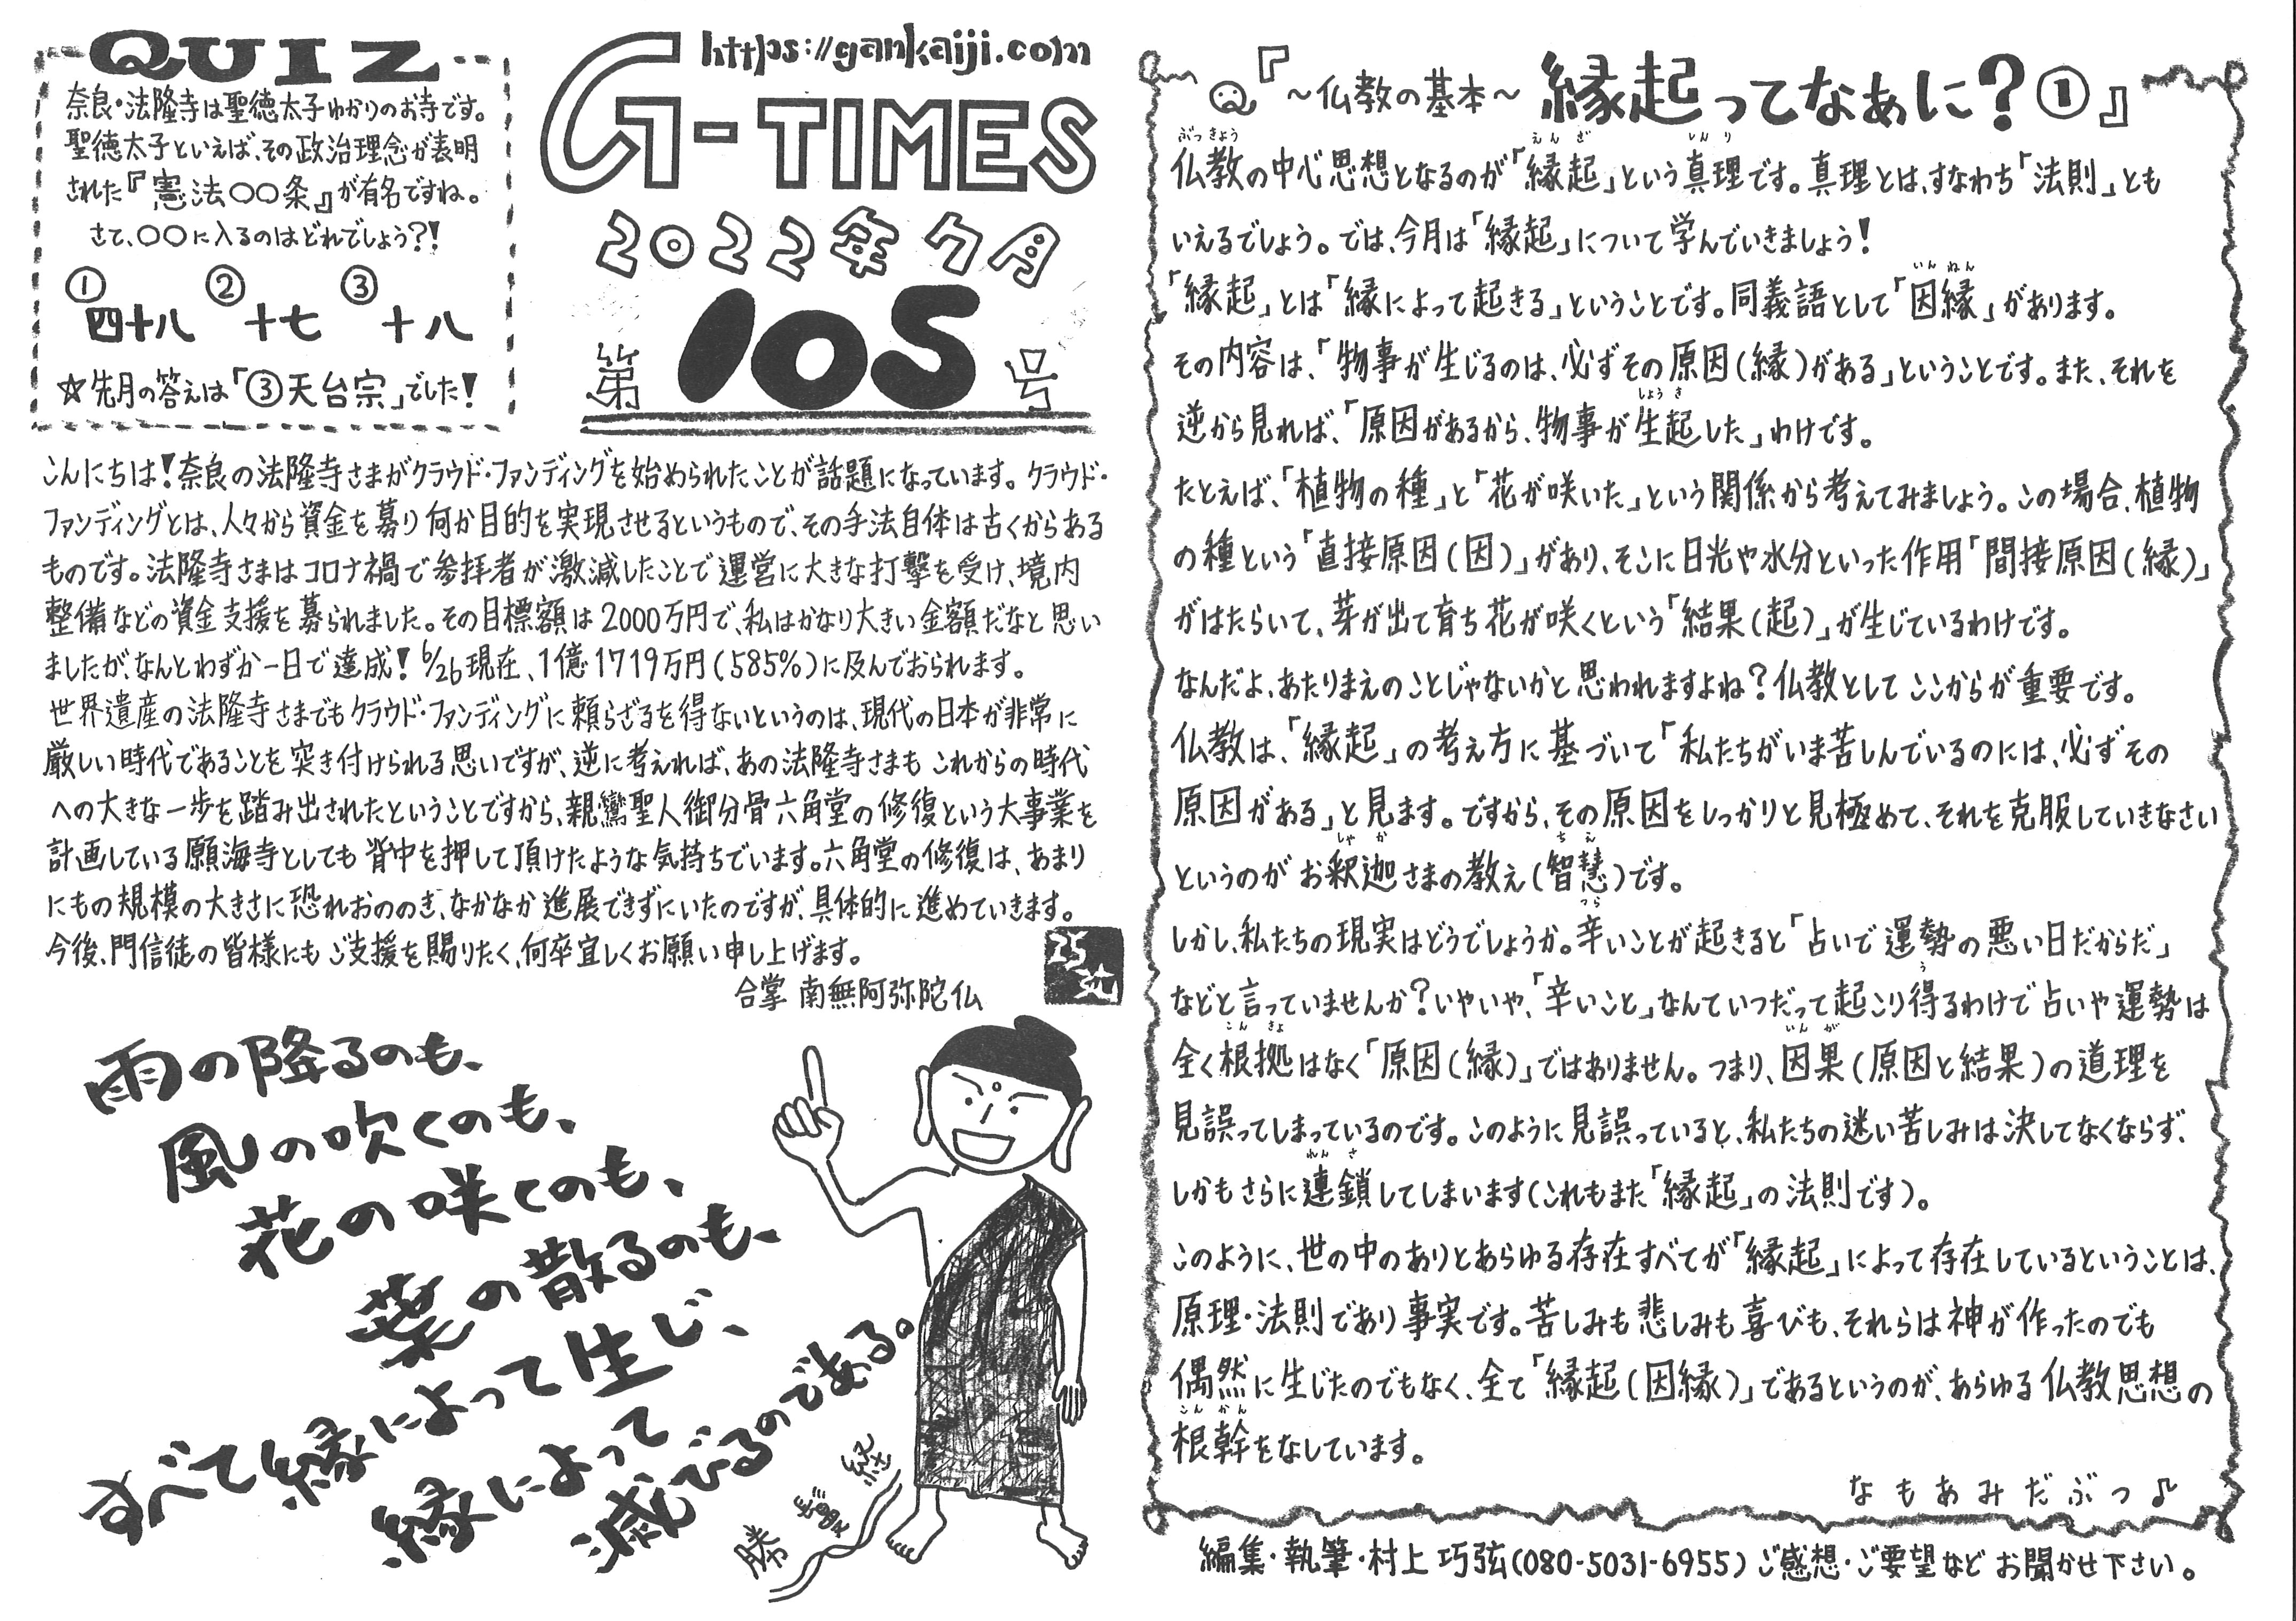 QUIZ
奈良・法隆寺は聖徳太子ゆかりのお寺です。
聖徳太子といえば、その政治理念が表明
された『憲法〇〇条』が有名ですね。
さて、〇〇に入るのはどれでしょう?!
①四十八 ②十七 ③十八
☆先月の答えは「③天台宗」でした!
https://gankaiji.com
G-TIMES
2022年7月
第105号
こんにちは!奈良の法隆寺さまがクラウド・ファンディングを始められたことが話題になっています。クラウド・
ファンディングとは、人々から資金を募り何か目的を実現させるというもので、その手法自体は古くからある
ものです。法隆寺さまはコロナ禍で参拝者が激減したことで運営に大きな打撃を受け、境内
整備などの資金支援を募られました。その目標額は2000万円で、私はかなり大きい金額だなと思い
ましたが、なんとわずか一日で達成!6/26現在、1億1719万円(585%)に及んでおられます。
世界遺産の法隆寺さまでもクラウド・ファンディングに頼らざるを得ないというのは、現代の日本が非常に
厳しい時代であることを突き付けられる思いですが、逆に考えれば、あの法隆寺さまもこれからの時代
への大きな一歩を踏み出されたということですから、親鸞聖人御分骨六角堂の修復という大事業を
計画している願海寺としても背中を押して頂けたような気持ちでいます。六角堂の修復は、あまり
にもの規模の大きさに恐れおののき、なかなか進展できずにいたのですが、具体的に進めていきます。
今後、門信徒の皆様にもご支援を賜りたく、何卒宜しくお願い申し上げます。
合掌 南無阿弥陀仏
雨の降るのも、
風の吹くのも、
花の咲くのも、
葉の散るのも、
すべて縁によって生じ、
縁によって
滅びるのである。
勝鬘経
『~仏教の基本~ 縁起ってなぁに?①』
ぶっきょう えんぎ しんり
仏教の中心思想となるのが「縁起」という真理です。真理とは、すなわち「法則」とも
いえるでしょう。では、今月は「縁起」について学んでいきましょう!
いんねん
「縁起」とは「縁によって起きる」ということです。同義語として「因縁」があります。
その内容は、「物事が生じるのは、必ずその原因(縁)がある」ということです。また、それを
しょうき
逆から見れば、「原因があるから、物事が生起した」わけです。
たとえば、「植物の種」と「花が咲いた」という関係から考えてみましょう。この場合、植物
の種という「直接原因(因)」があり、そこに日光や水分といった作用「間接原因(縁)」
がはたらいて、芽が出て育ち花が咲くという「結果(起)」が生じているわけです。
なんだよ、あたりまえのことじゃないかと思われますよね?仏教としてここからが重要です。
仏教は、「縁起」の考え方に基づいて「私たちがいま苦しんでいるのには、必ずその
原因がある」と見ます。ですから、その原因をしっかりと見極めて、それを克服していきなさい
しゃか ちえ
というのがお釈迦さまの教え(智慧)です。
つら
しかし、私たちの現実はどうでしょうか。辛いことが起きると「占いで運勢の悪い日だからだ」
う
などと言っていませんか?いやいや、「辛いこと」なんていつだって起こり得るわけで占いや運勢は
こんきょ いんが
全く根拠はなく「原因(縁)」ではありません。つまり、因果(原因と結果)の道理を
見誤ってしまっているのです。このように見誤っていると、私たちの迷い苦しみは決してなくならず、
れんさ
しかもさらに連鎖してしまいます(これもまた「縁起」の法則です)。
このように、世の中のありとあらゆる存在すべてが「縁起」によって存在しているということは、
原理・法則であり事実です。苦しみも悲しみも喜びも、それらは神が作ったのでも
偶然に生じたのでもなく、全て「縁起(因縁)」であるというのが、あらゆる仏教思想の
こんかん
根幹をなしています。
なもあみだぶつ♪
編集・執筆・村上巧弦(080-5031-6955)ご感想・ご要望などお聞かせ下さい。